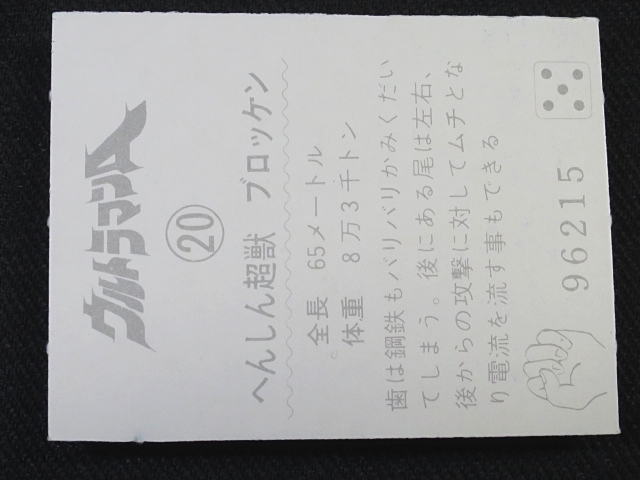 ウルトラマンA
⑳
へんしん超獣 ブロッケン
全長 65メートル
体重 8万3千トン
歯は鋼鉄もバリバリかみくだい
てしまう。後にある尾は左右、
後からの攻撃に対してムチとな
り電流を流す事もできる
96215